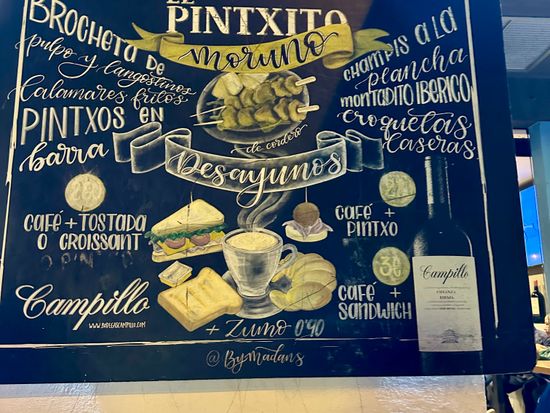 EL
PINTXITO
moruno
de cordero
BROCHETA DE
pulpo y langostinos
Calamares fritos
PINTXOS EN
barra
CHAMPIS A LA
plancha
montadito IBERICO
croquetas
Caseras
Desayunos
CAFÉ + TOSTADA
O CROISSANT
CAFÉ +
PINTXO
CAFÉ +
SANDWICH
+ ZUMO 0'90
Campillo
WWW.BODEGASCAMPILLO.COM
@ByMadans
Campillo
CRIANZA
RIOJA